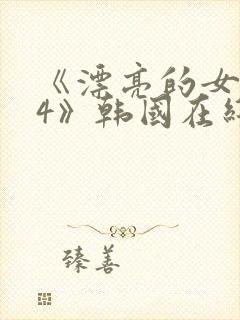 《漂亮的女
4》韩國在
臻善